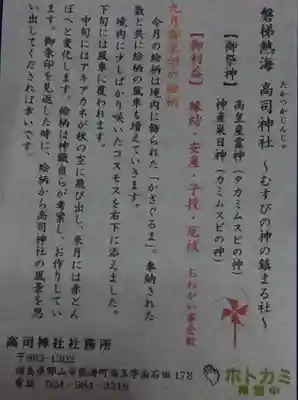 磐梯熱海 高司神社 ～むすびの神の鎮まる社～
たかつかじんじゃ
【御祭神】 高皇産霊神（タカミムスビの神）
神産巣日神（カミムスビの神）
【御利益】 縁結・安産・子授・厄祓
九月御朱印の絵柄
今月の絵柄は境内に飾られた「かざぐるま」。奉納された
数と共に絵柄の風車も増えていきます。
境内に少しばかり咲いたコスモスを右下に添えました。
下旬には風車に覆われます。
中旬にはアキアカネが秋の空に飛び出し、来月には赤とん
ぼへと変化します。絵柄は神職自らが考案し、お作りしてい
ます。御朱印を見返した時に、絵柄から高司神社の風景を思
い出してくだされば幸いです。
高司神社社務所
〒963-1302
福島県郡山市熱海町
178
電話 024-984-
ホトカミ